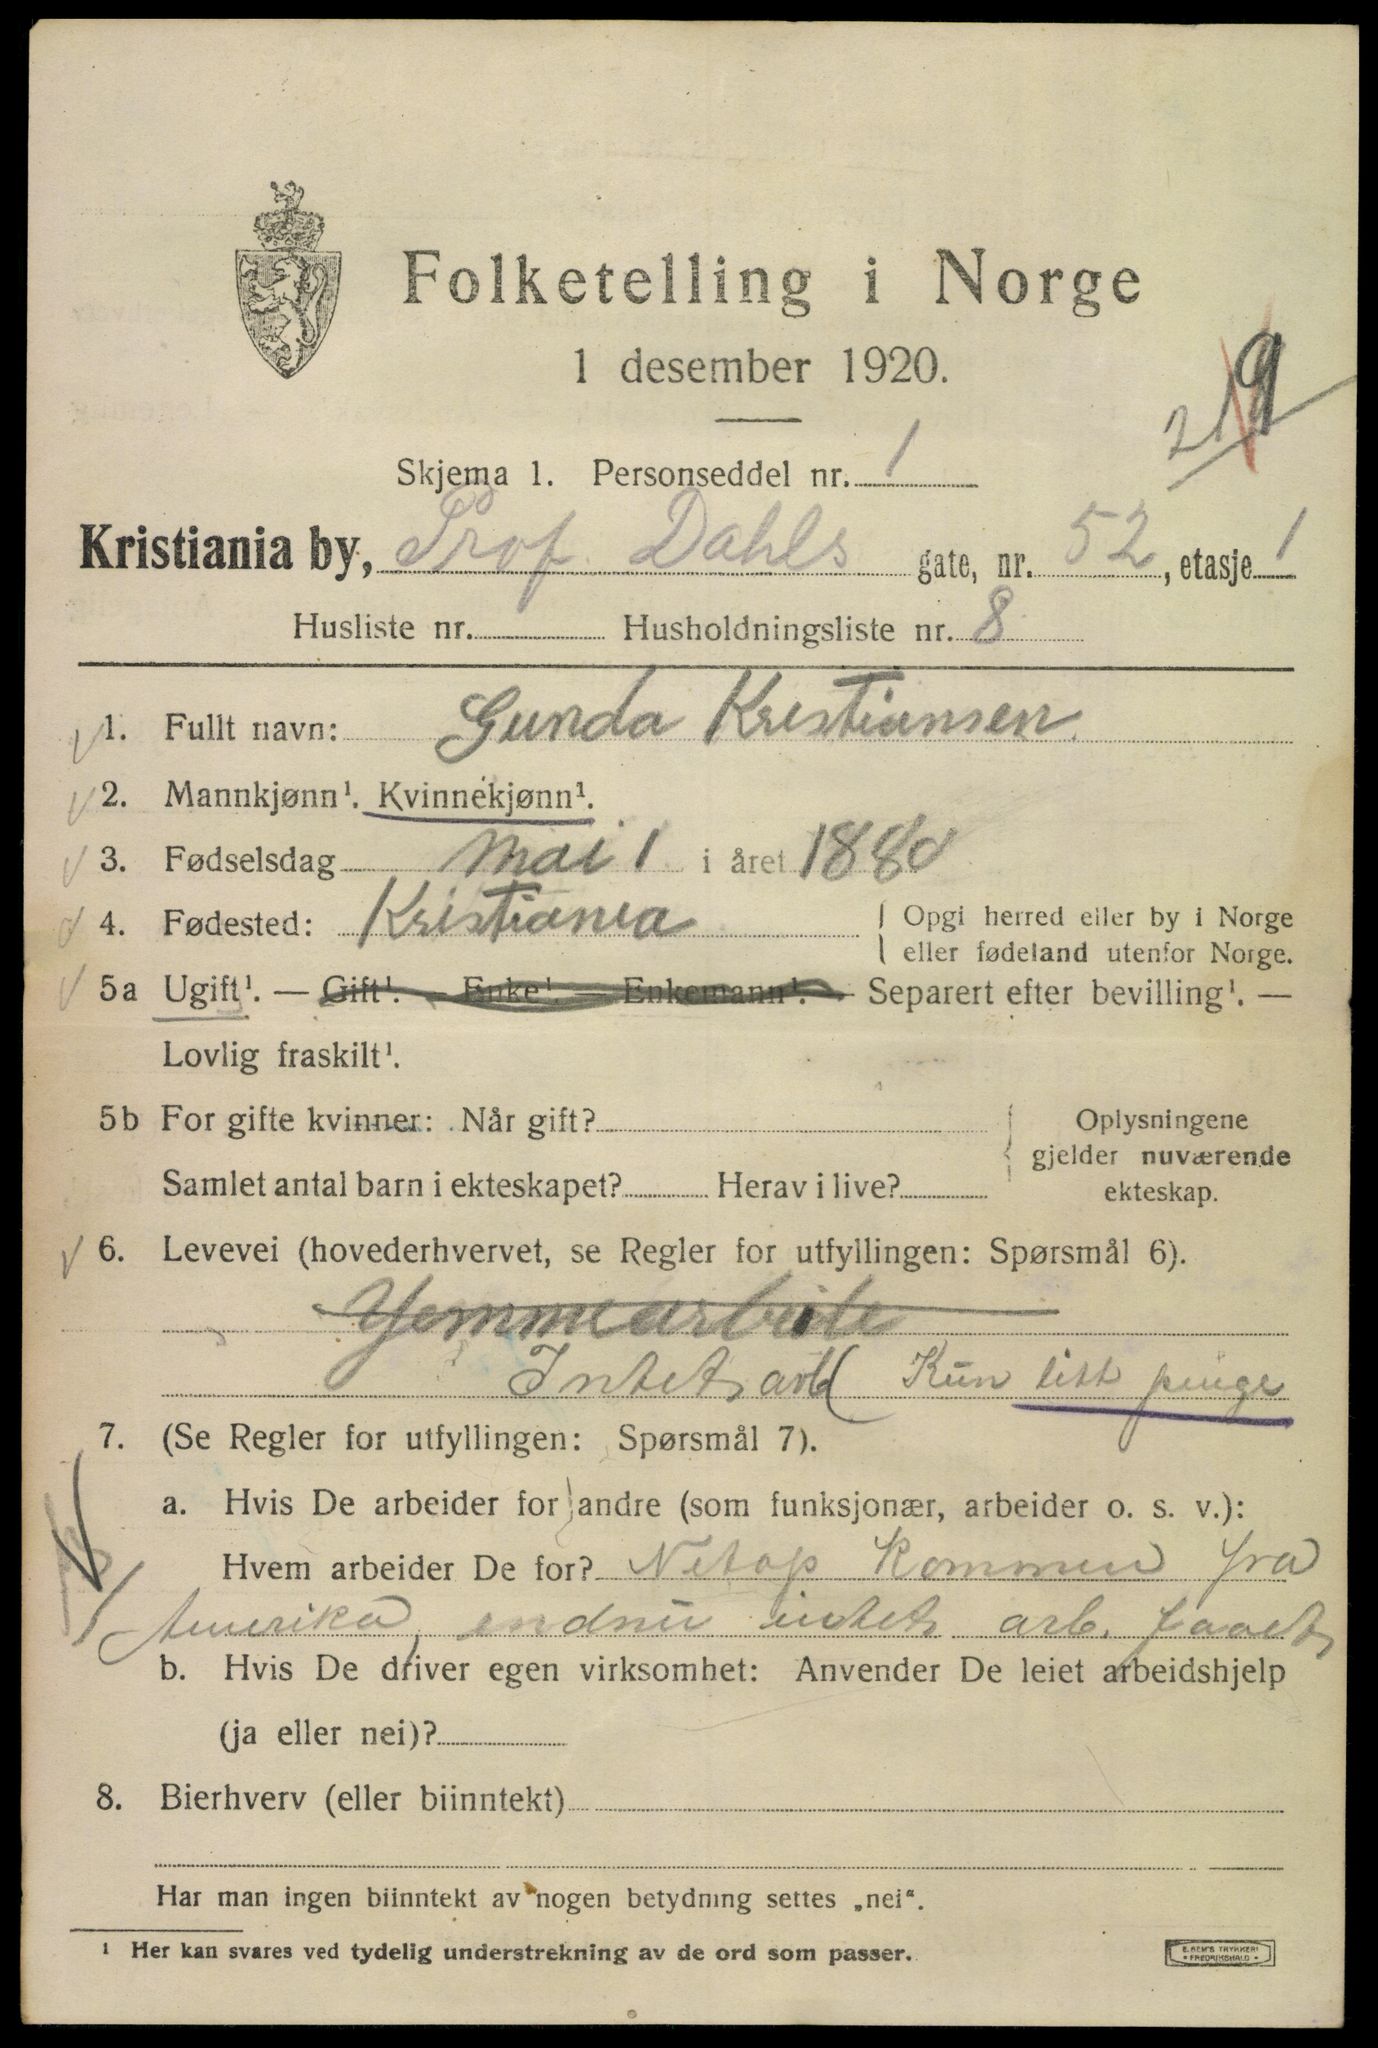 Folketelling i Norge
1 desember 1920.
219
Skjema 1. Personseddel nr. 1
Kristiania by, Prof Dahls gate, nr. 52, etasje 1
Husliste nr. Husholdningsliste nr. 8
1. Fullt navn: Gunda Kristiansen
2. Mannkjønn¹. Kvinnekjønn¹.
3. Fødselsdag mai 1 i året 1880
4. Fødested: Kristiania
Opgi herred eller by i Norge
eller fødeland utenfor Norge.
5a Ugift¹. — Gift¹. — Enke¹. — Enkemann¹. — Separert efter bevilling¹. —
Lovlig fraskilt¹.
5b For gifte kvinner: Når gift?
Samlet antal barn i ekteskapet? Herav i live?
Oplysningene
gjelder nuværende
ekteskap.
6. Levevei (hovederhvervet, se Regler for utfyllingen: Spørsmål 6).
Intet arb ( Kun litt penge
7. (Se Regler for utfyllingen: Spørsmål 7).
a. Hvis De arbeider for andre (som funksjonær, arbeider o. s. v.):
Hvem arbeider De for? Netop kommen fra
Amerika, endnu intet arb. faaet
b. Hvis De driver egen virksomhet: Anvender De leiet arbeidshjelp
(ja eller nei)?
8. Bierhverv (eller biinntekt)
Har man ingen biinntekt av nogen betydning settes „nei“.
¹ Her kan svares ved tydelig understrekning av de ord som passer.
E. SEM'S TRYKKERI
• FREDRIKSHALD •